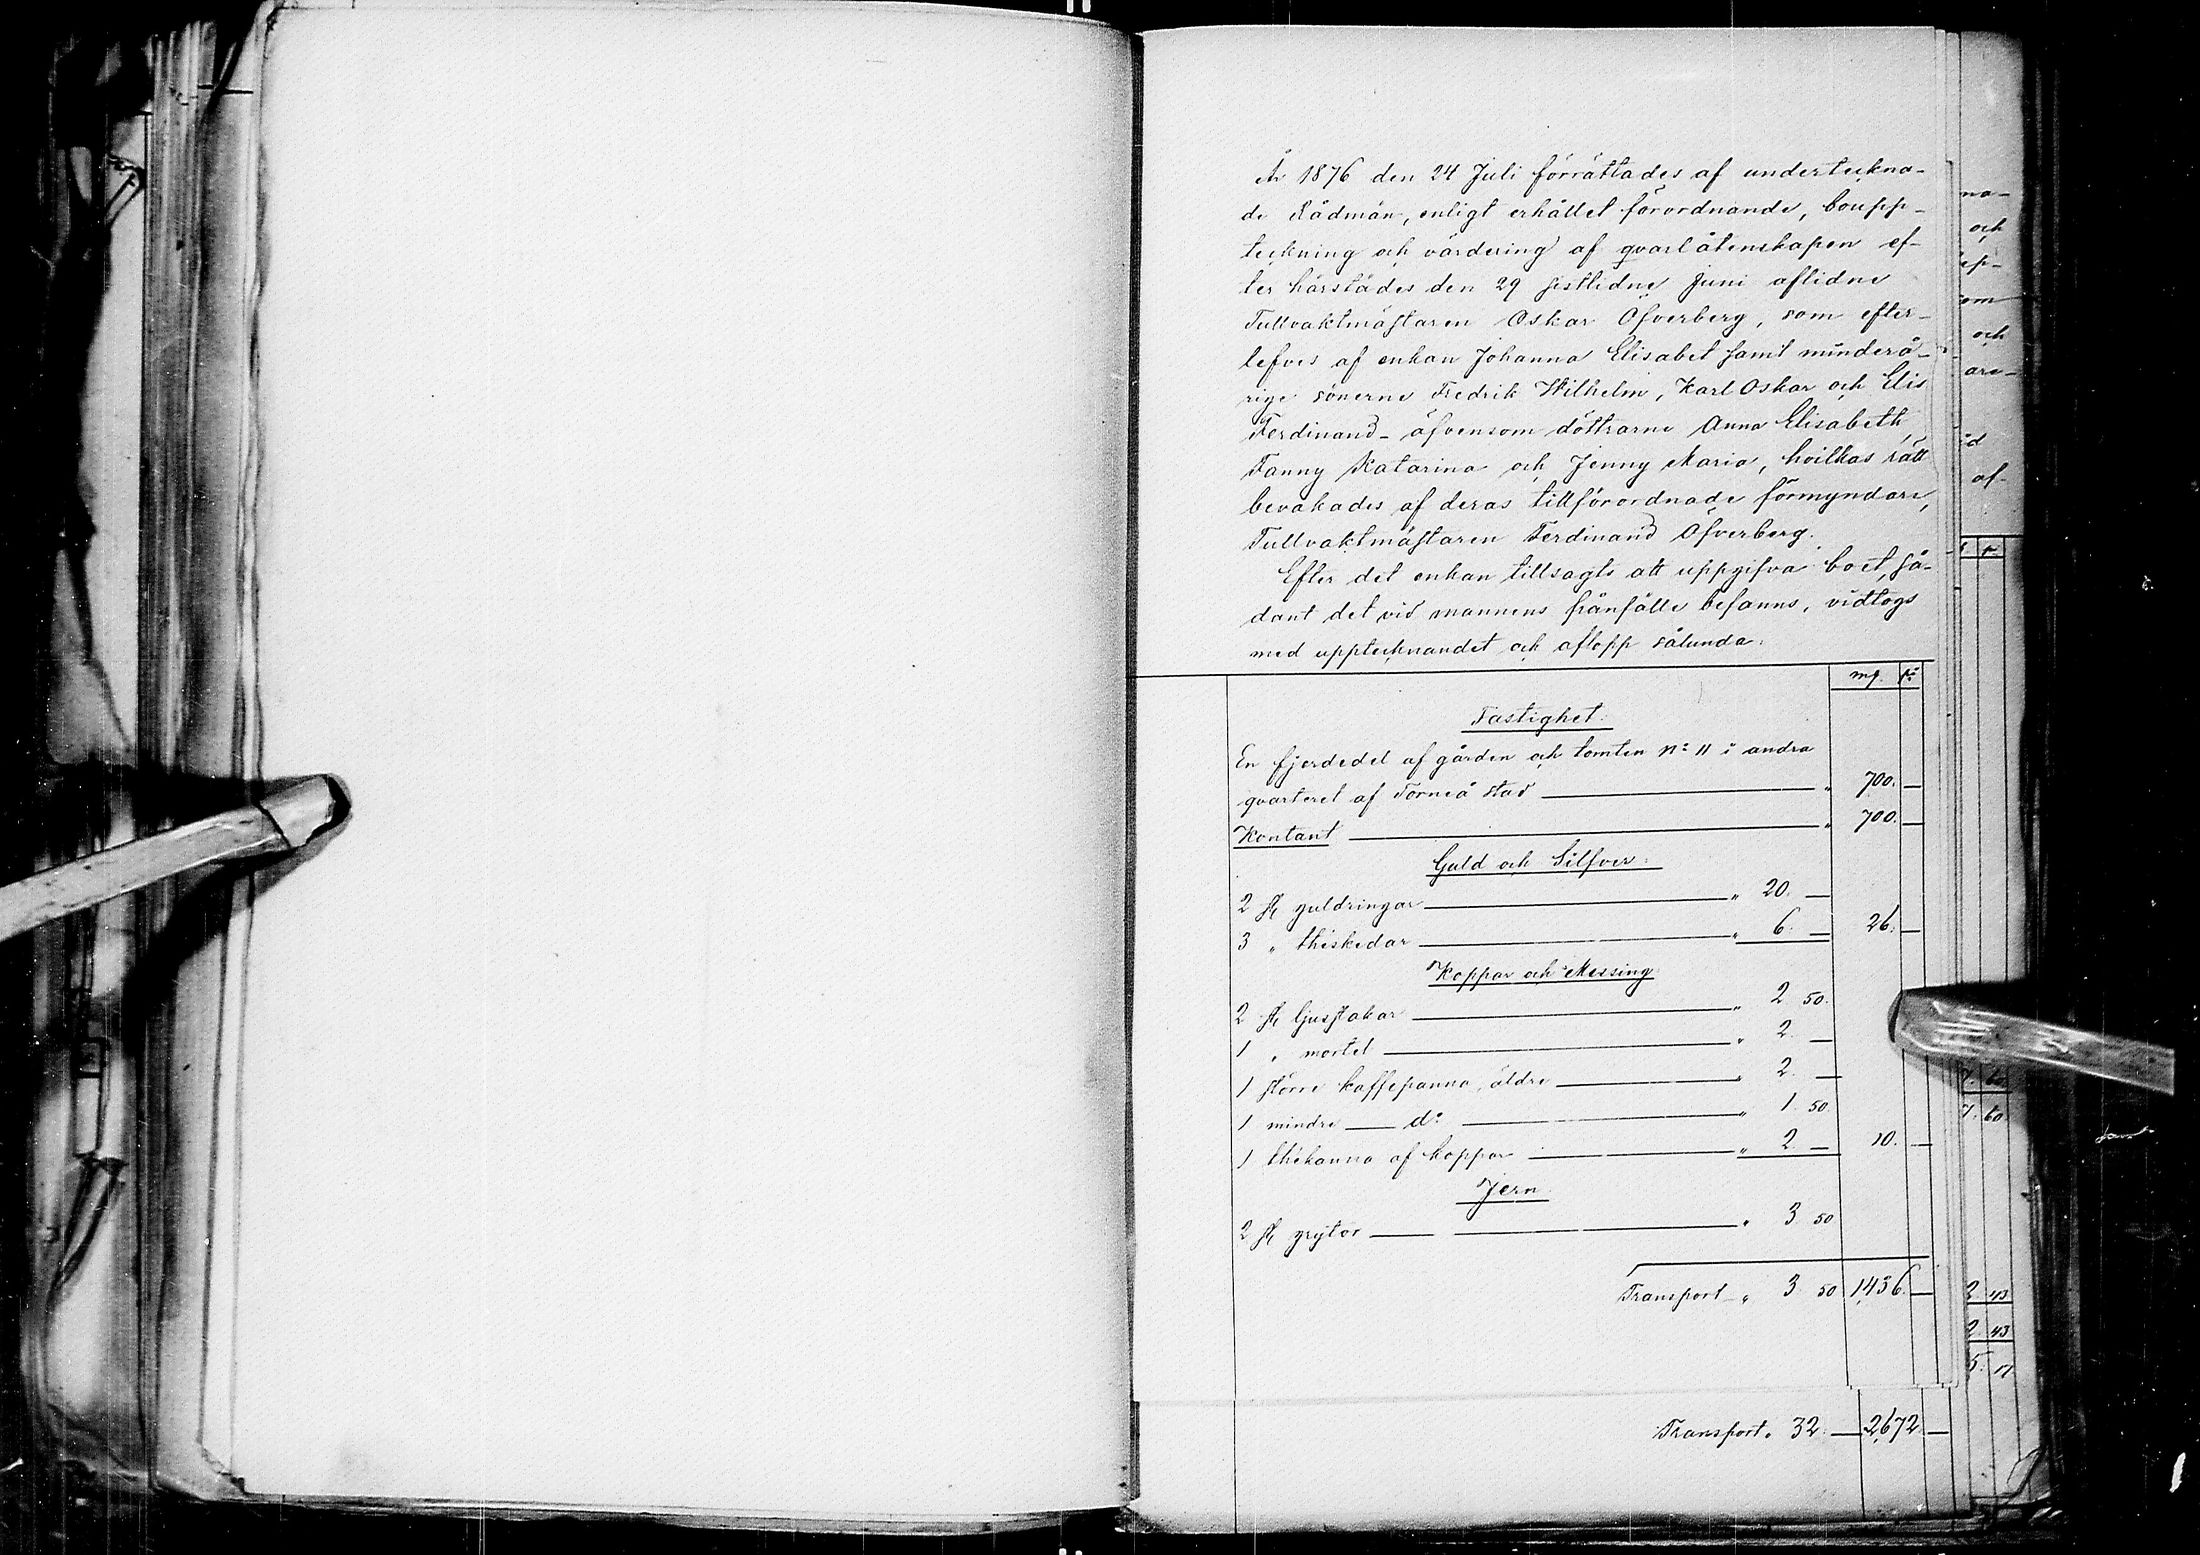 År 1876 den 24 Juli förrättades af underteckna-
de Rådmän, enligt erhållet förordnande, boupp-
teckning och värdering af qvarlåtenskapen ef-
ter härstädes den 29 sistlidne Juni aflidne
Tullvaktmästaren Oskar Öfverberg, som efter-
lefves af enkan Johanna Elisabet samt minderå-
rige sönerne Fredrik Wilhelm, Karl Oskar och Elis
Ferdinand - äfvensom döttrarne Anna Elisabeth,
Fanny Katarina och Jenny Maria, hvilkas rätt
bevakades af deras tillförordnade förmyndare,
Tullvaktmästaren Ferdinand Öfverberg.
Efter det enkan tillsagts att uppgifva boet, så-
dant det vid mannens frånfälle befanns, vidtogs
med upptecknandet och aflopp sålunda:
mf. pi
Fastighet.
En fjerdedel af gården och tomten No 11 i andra
qvarteret af Torneå stad — „ 700. —
Kontant — „ 700. —
Guld och Silfver:
2 st guldringar — „ 20. —
3 „ théskedar — „ 6. — 26. —
Koppar och Messing
2 st ljusstakar — „ 2 50.
1 „ mortel — „ 2. —
1 större kaffepanna, äldre — „ 2. —
1 mindre — do — „ 1. 50.
1 thékanna af koppar — „ 2 — 10. —
Jern
2 st grytor — „ 3 50
Transport „ 3 50 1,436. —
Transport „ 32. — 2,672 —
na-
och
ep-
om
och
are-
id
af-
7. 60
7. 60.
2 43
2 43
5. 17